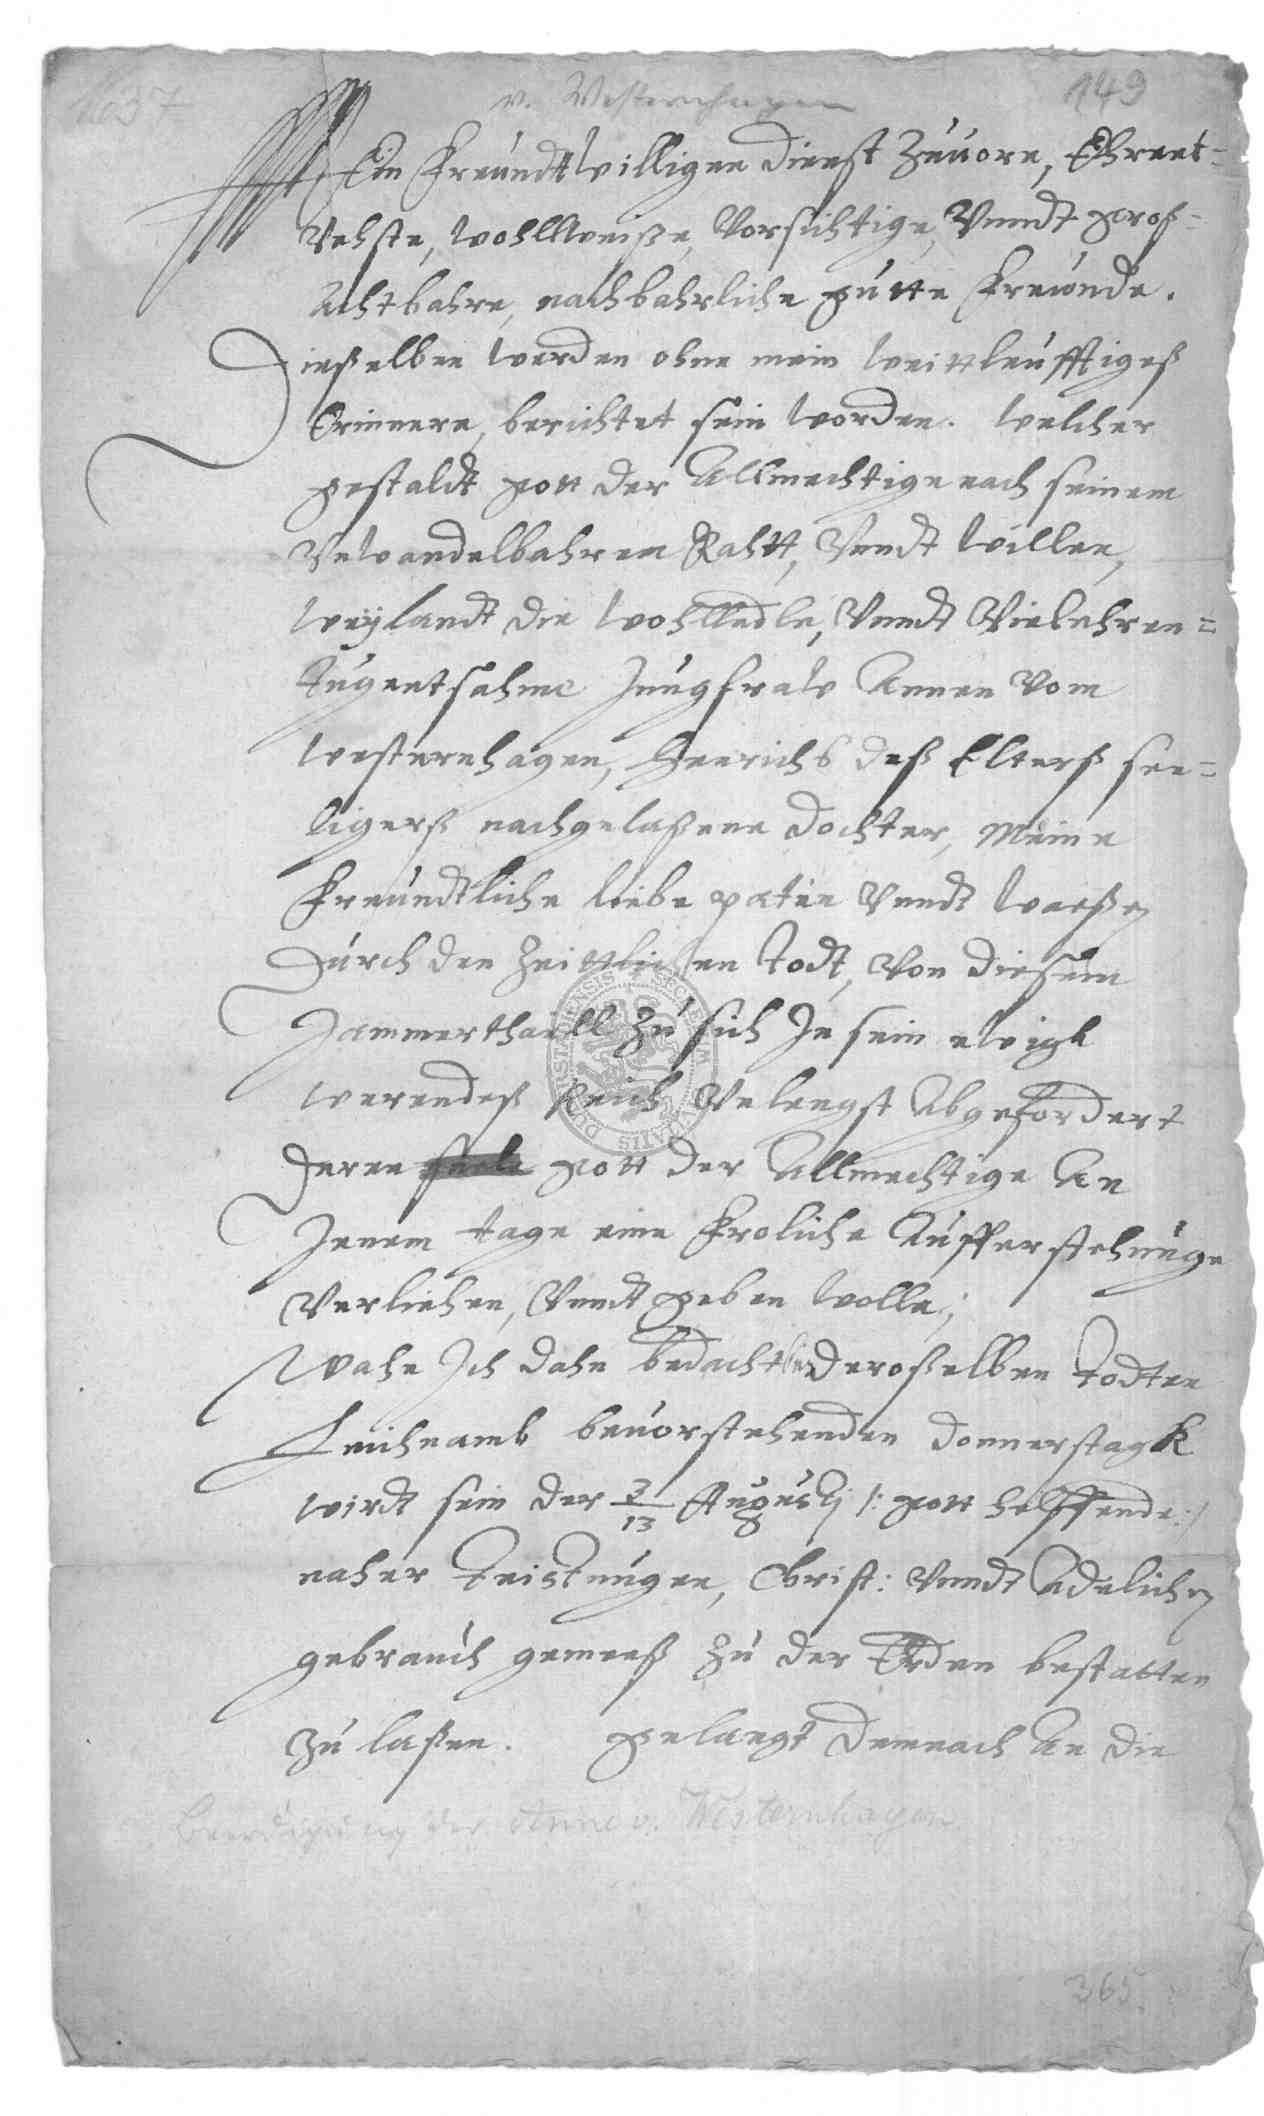 1637
v. Westernhagen
149
Mein Freundtwilligen dienst Zuuorn, Ehrnt-
Vehste, wohllweiße, Vorsichtige, Vnndt groß-
Achtbahre, nachbahrliche gutte Freunde.
Dieselben werden ohne mein weittleufftiges
Erinnern, berichtet sein worden. welcher
gestaldt gott der Allmechtige nach seinem
Vnwandelbahren Rahtt, Vnndt willen,
weylandt die wohlledle, Vnndt Vielehren=
tugentsahme Jungfraw Annen Vom
westernhagen, Henrichs deß Elters see=
ligers nachgelaßene dochter, Meine
Freundtliche liebe patin Vndt waeße
durch den Zeittlichen todt, Von diesem
Jammerthaell Zu sich In sein ewigk
werendes Reich Vnlengst Abgefordert
deren seele gott der Allmechtige An
Jenem tage eine Froliche Aufferstehunge
Verliehen, Vnndt geben wolle;
Wahn Ich dahn bedacht deroselben todten
Leichnamb beuorstehenden donnerstagk
wirdt sein der 3/13 Augusti /: gott helffende :/
naher Teistungen, Christ: Vnndt Adelichen
gebrauch gemees Zu der Erden bestatten
Zu laßen. gelangt demnach An die
Beerdigung der Anna v. Westernhagen
365.
SECRETUM CIVITATIS DUDERSTADIENSIS